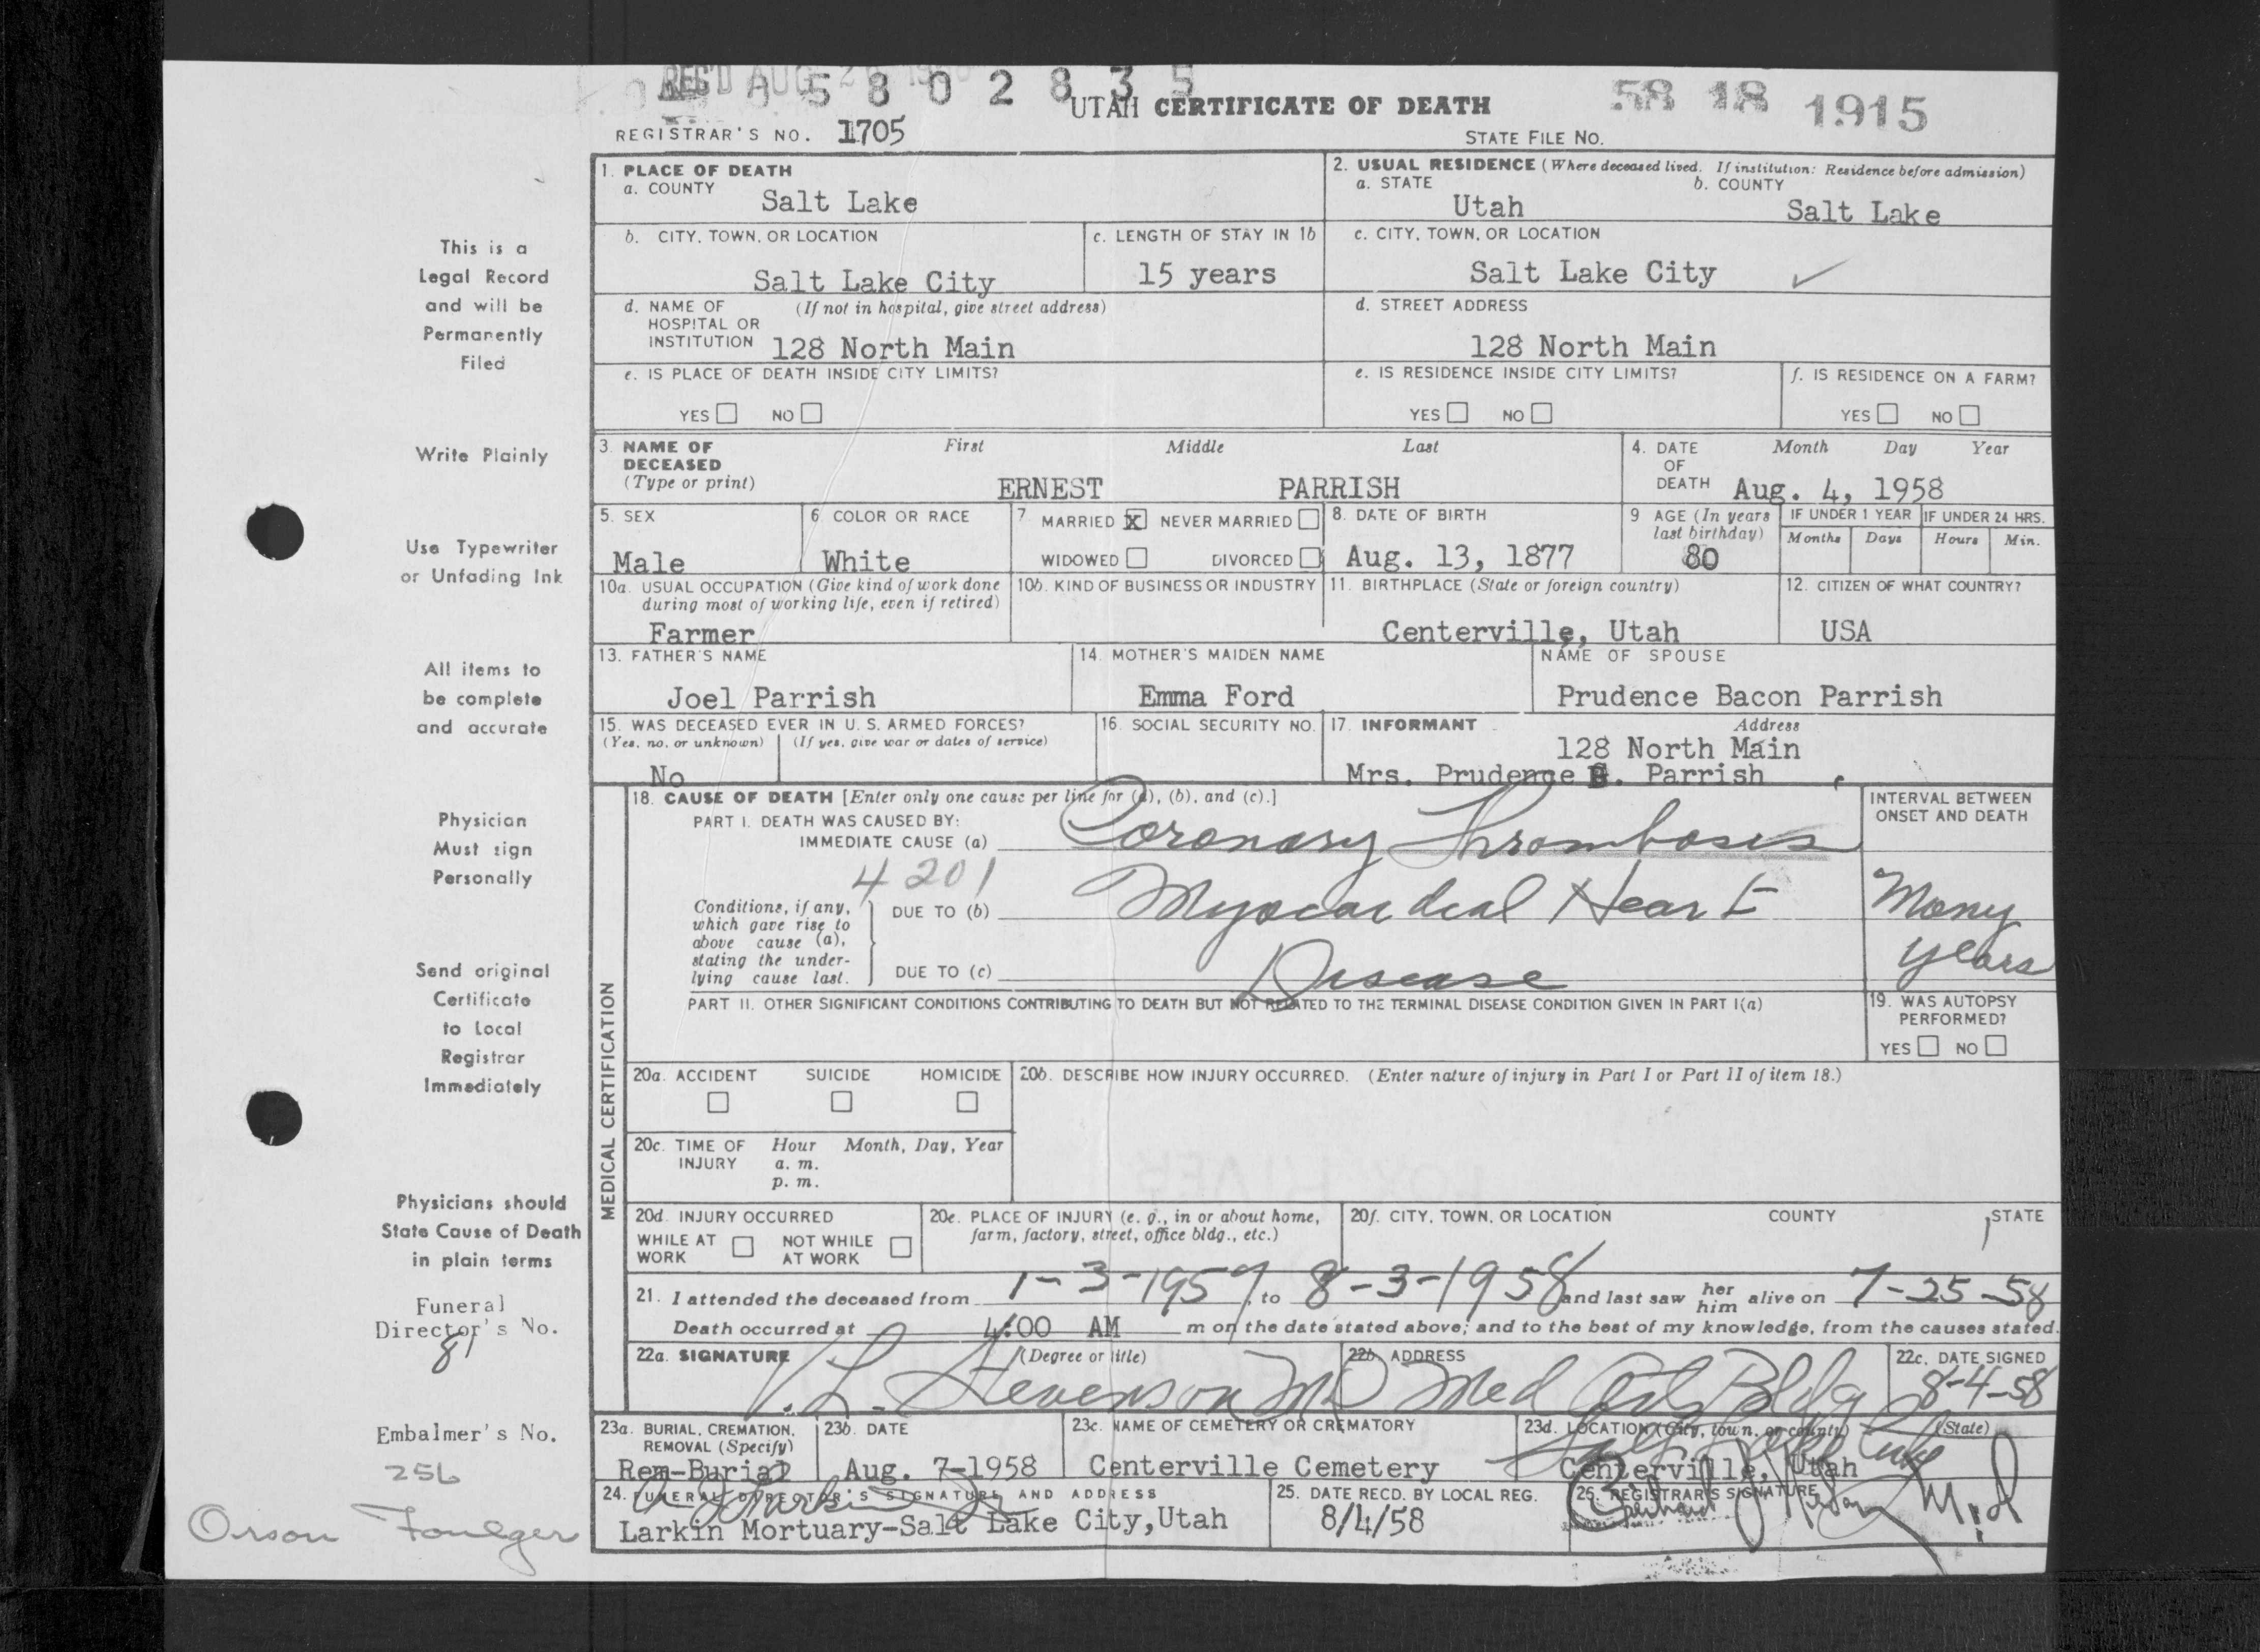 REC'D AUG
A 5 8 0 2 8 3 5
UTAH CERTIFICATE OF DEATH
58 18 1915
REGISTRAR'S NO. 1705
STATE FILE NO.
1. PLACE OF DEATH
a. COUNTY
Salt Lake
2. USUAL RESIDENCE (Where deceased lived. If institution: Residence before admission)
a. STATE
Utah
b. COUNTY
Salt Lake
b. CITY, TOWN, OR LOCATION
Salt Lake City
c. LENGTH OF STAY IN 1b
15 years
c. CITY, TOWN, OR LOCATION
Salt Lake City
d. NAME OF (If not in hospital, give street address)
HOSPITAL OR
INSTITUTION 128 North Main
d. STREET ADDRESS
128 North Main
e. IS PLACE OF DEATH INSIDE CITY LIMITS?
YES NO
e. IS RESIDENCE INSIDE CITY LIMITS?
YES NO
f. IS RESIDENCE ON A FARM?
YES NO
3. NAME OF First Middle Last
DECEASED
(Type or print) ERNEST PARRISH
4. DATE Month Day Year
OF
DEATH Aug. 4, 1958
5. SEX
Male
6. COLOR OR RACE
White
7. MARRIED X NEVER MARRIED
WIDOWED DIVORCED
8. DATE OF BIRTH
Aug. 13, 1877
9 AGE (In years
last birthday)
80
IF UNDER 1 YEAR IF UNDER 24 HRS.
Months Days Hours Min.
10a. USUAL OCCUPATION (Give kind of work done
during most of working life, even if retired)
Farmer
10b. KIND OF BUSINESS OR INDUSTRY
11. BIRTHPLACE (State or foreign country)
Centerville, Utah
12. CITIZEN OF WHAT COUNTRY?
USA
13. FATHER'S NAME
Joel Parrish
14. MOTHER'S MAIDEN NAME
Emma Ford
NAME OF SPOUSE
Prudence Bacon Parrish
15. WAS DECEASED EVER IN U. S. ARMED FORCES?
(Yes, no, or unknown) (If yes, give war or dates of service)
No
16. SOCIAL SECURITY NO.
17. INFORMANT Address
128 North Main
Mrs. Prudence B. Parrish
MEDICAL CERTIFICATION
18. CAUSE OF DEATH [Enter only one cause per line for (a), (b), and (c).]
PART I. DEATH WAS CAUSED BY:
IMMEDIATE CAUSE (a) Coronary Thrombosis
4201
Conditions, if any,
which gave rise to
above cause (a),
stating the under-
lying cause last.
DUE TO (b) Myocardial Heart
DUE TO (c) Disease
INTERVAL BETWEEN
ONSET AND DEATH
Many
years
PART II. OTHER SIGNIFICANT CONDITIONS CONTRIBUTING TO DEATH BUT NOT RELATED TO THE TERMINAL DISEASE CONDITION GIVEN IN PART I(a)
19. WAS AUTOPSY
PERFORMED?
YES NO
20a. ACCIDENT SUICIDE HOMICIDE
20b. DESCRIBE HOW INJURY OCCURRED. (Enter nature of injury in Part I or Part II of item 18.)
20c. TIME OF Hour Month, Day, Year
INJURY a. m.
p. m.
20d. INJURY OCCURRED
WHILE AT NOT WHILE
WORK AT WORK
20e. PLACE OF INJURY (e. g., in or about home,
farm, factory, street, office bldg., etc.)
20f. CITY, TOWN, OR LOCATION COUNTY STATE
21. I attended the deceased from 1-3-1957, to 8-3-1958 and last saw her him alive on 7-25-58
Death occurred at 4:00 AM m on the date stated above; and to the best of my knowledge, from the causes stated.
22a. SIGNATURE (Degree or title)
V. L. Stevenson MD
22b. ADDRESS
Med Arts Bldg
Salt Lake City
22c. DATE SIGNED
8-4-58
23a. BURIAL, CREMATION,
REMOVAL (Specify)
Rem-Burial
23b. DATE
Aug. 7-1958
23c. NAME OF CEMETERY OR CREMATORY
Centerville Cemetery
23d. LOCATION (City, town, or county) (State)
Centerville, Utah
24. FUNERAL DIRECTOR'S SIGNATURE AND ADDRESS
Larkin Mortuary-Salt Lake City,Utah
25. DATE RECD. BY LOCAL REG.
8/4/58
26. REGISTRAR'S SIGNATURE
M.D
This is a
Legal Record
and will be
Permanently
Filed
Write Plainly
Use Typewriter
or Unfading Ink
All items to
be complete
and accurate
Physician
Must sign
Personally
Send original
Certificate
to Local
Registrar
Immediately
Physicians should
State Cause of Death
in plain terms
Funeral
Director's No.
81
Embalmer's No.
256
Orson Foulger